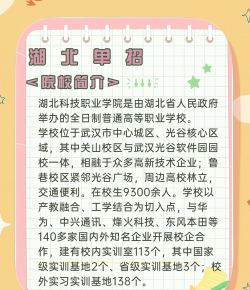 湖北单招
<院校简介>
湖北科技职业学院是由湖北省人民政府
举办的全日制普通高等职业学校。
学校位于武汉市中心城区、光谷核心区
域，其中关山校区与武汉光谷软件园园
校一体，相融于众多高新技术企业；鲁
巷校区紧邻光谷广场，周边高校林立，
交通便利。在校生9300余人。学校以
产教融合、工学结合为切入点，与华
为、中兴通讯、烽火科技、东风本田等
140多家国内外知名企业开展校企合
作，建有校内实训室113个，其中国家
级实训基地2个、省级实训基地3个；校
外实习实训基地138个。